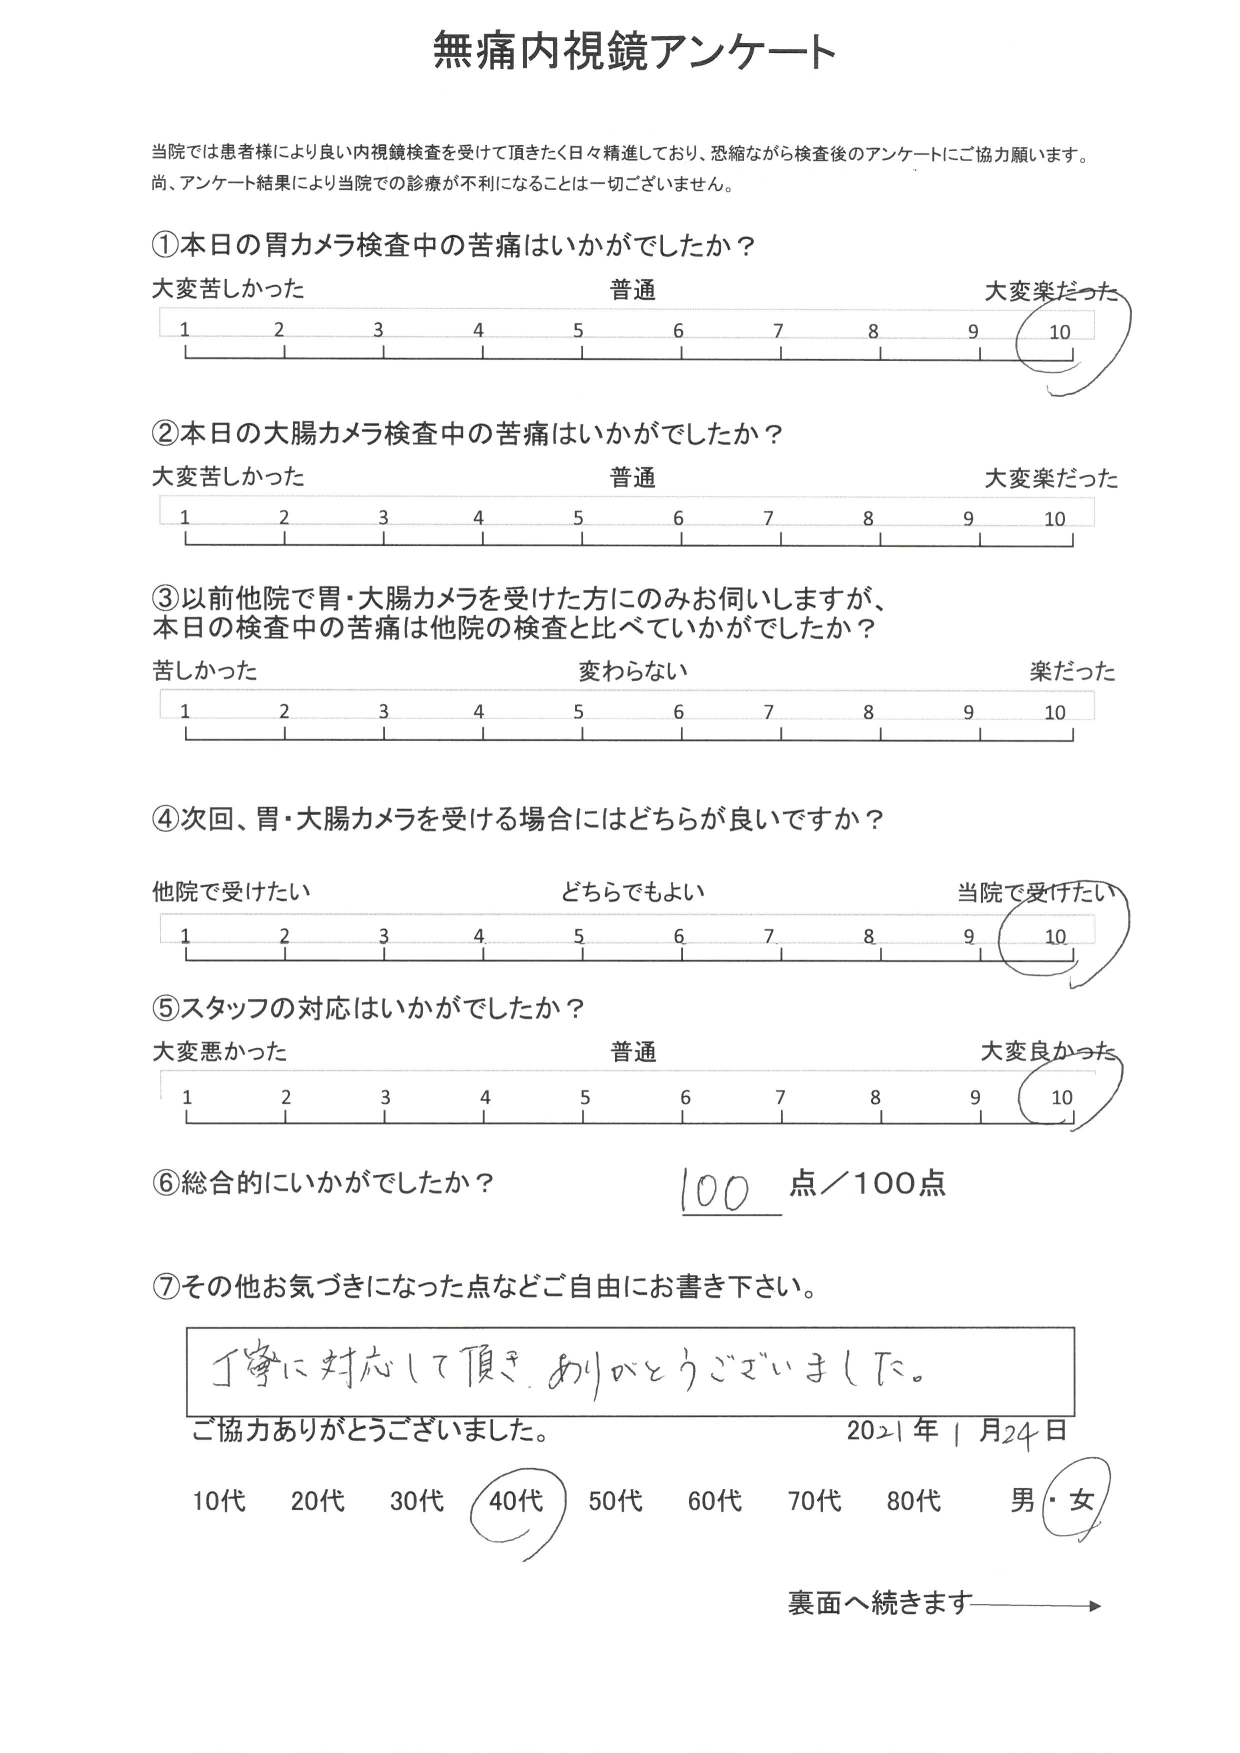 無痛内視鏡アンケート
当院では患者様により良い内視鏡検査を受けて頂きたく日々精進しており、恐縮ながら検査後のアンケートにご協力願います。
尚、アンケート結果により当院での診療が不利になることは一切ございません。
①本日の胃カメラ検査中の苦痛はいかがでしたか？
大変苦しかった 普通 大変楽だった
1 2 3 4 5 6 7 8 9 10
②本日の大腸カメラ検査中の苦痛はいかがでしたか？
大変苦しかった 普通 大変楽だった
1 2 3 4 5 6 7 8 9 10
③以前他院で胃・大腸カメラを受けた方にのみお伺いしますが、
本日の検査中の苦痛は他院の検査と比べていかがでしたか？
苦しかった 変わらない 楽だった
1 2 3 4 5 6 7 8 9 10
④次回、胃・大腸カメラを受ける場合にはどちらが良いですか？
他院で受けたい どちらでもよい 当院で受けたい
1 2 3 4 5 6 7 8 9 10
⑤スタッフの対応はいかがでしたか？
大変悪かった 普通 大変良かった
1 2 3 4 5 6 7 8 9 10
⑥総合的にいかがでしたか？ 100 点／100点
⑦その他お気づきになった点などご自由にお書き下さい。
丁寧に対応して頂き、ありがとうございました。
ご協力ありがとうございました。 2021年 1 月24日
10代 20代 30代 40代 50代 60代 70代 80代 男・女
裏面へ続きます